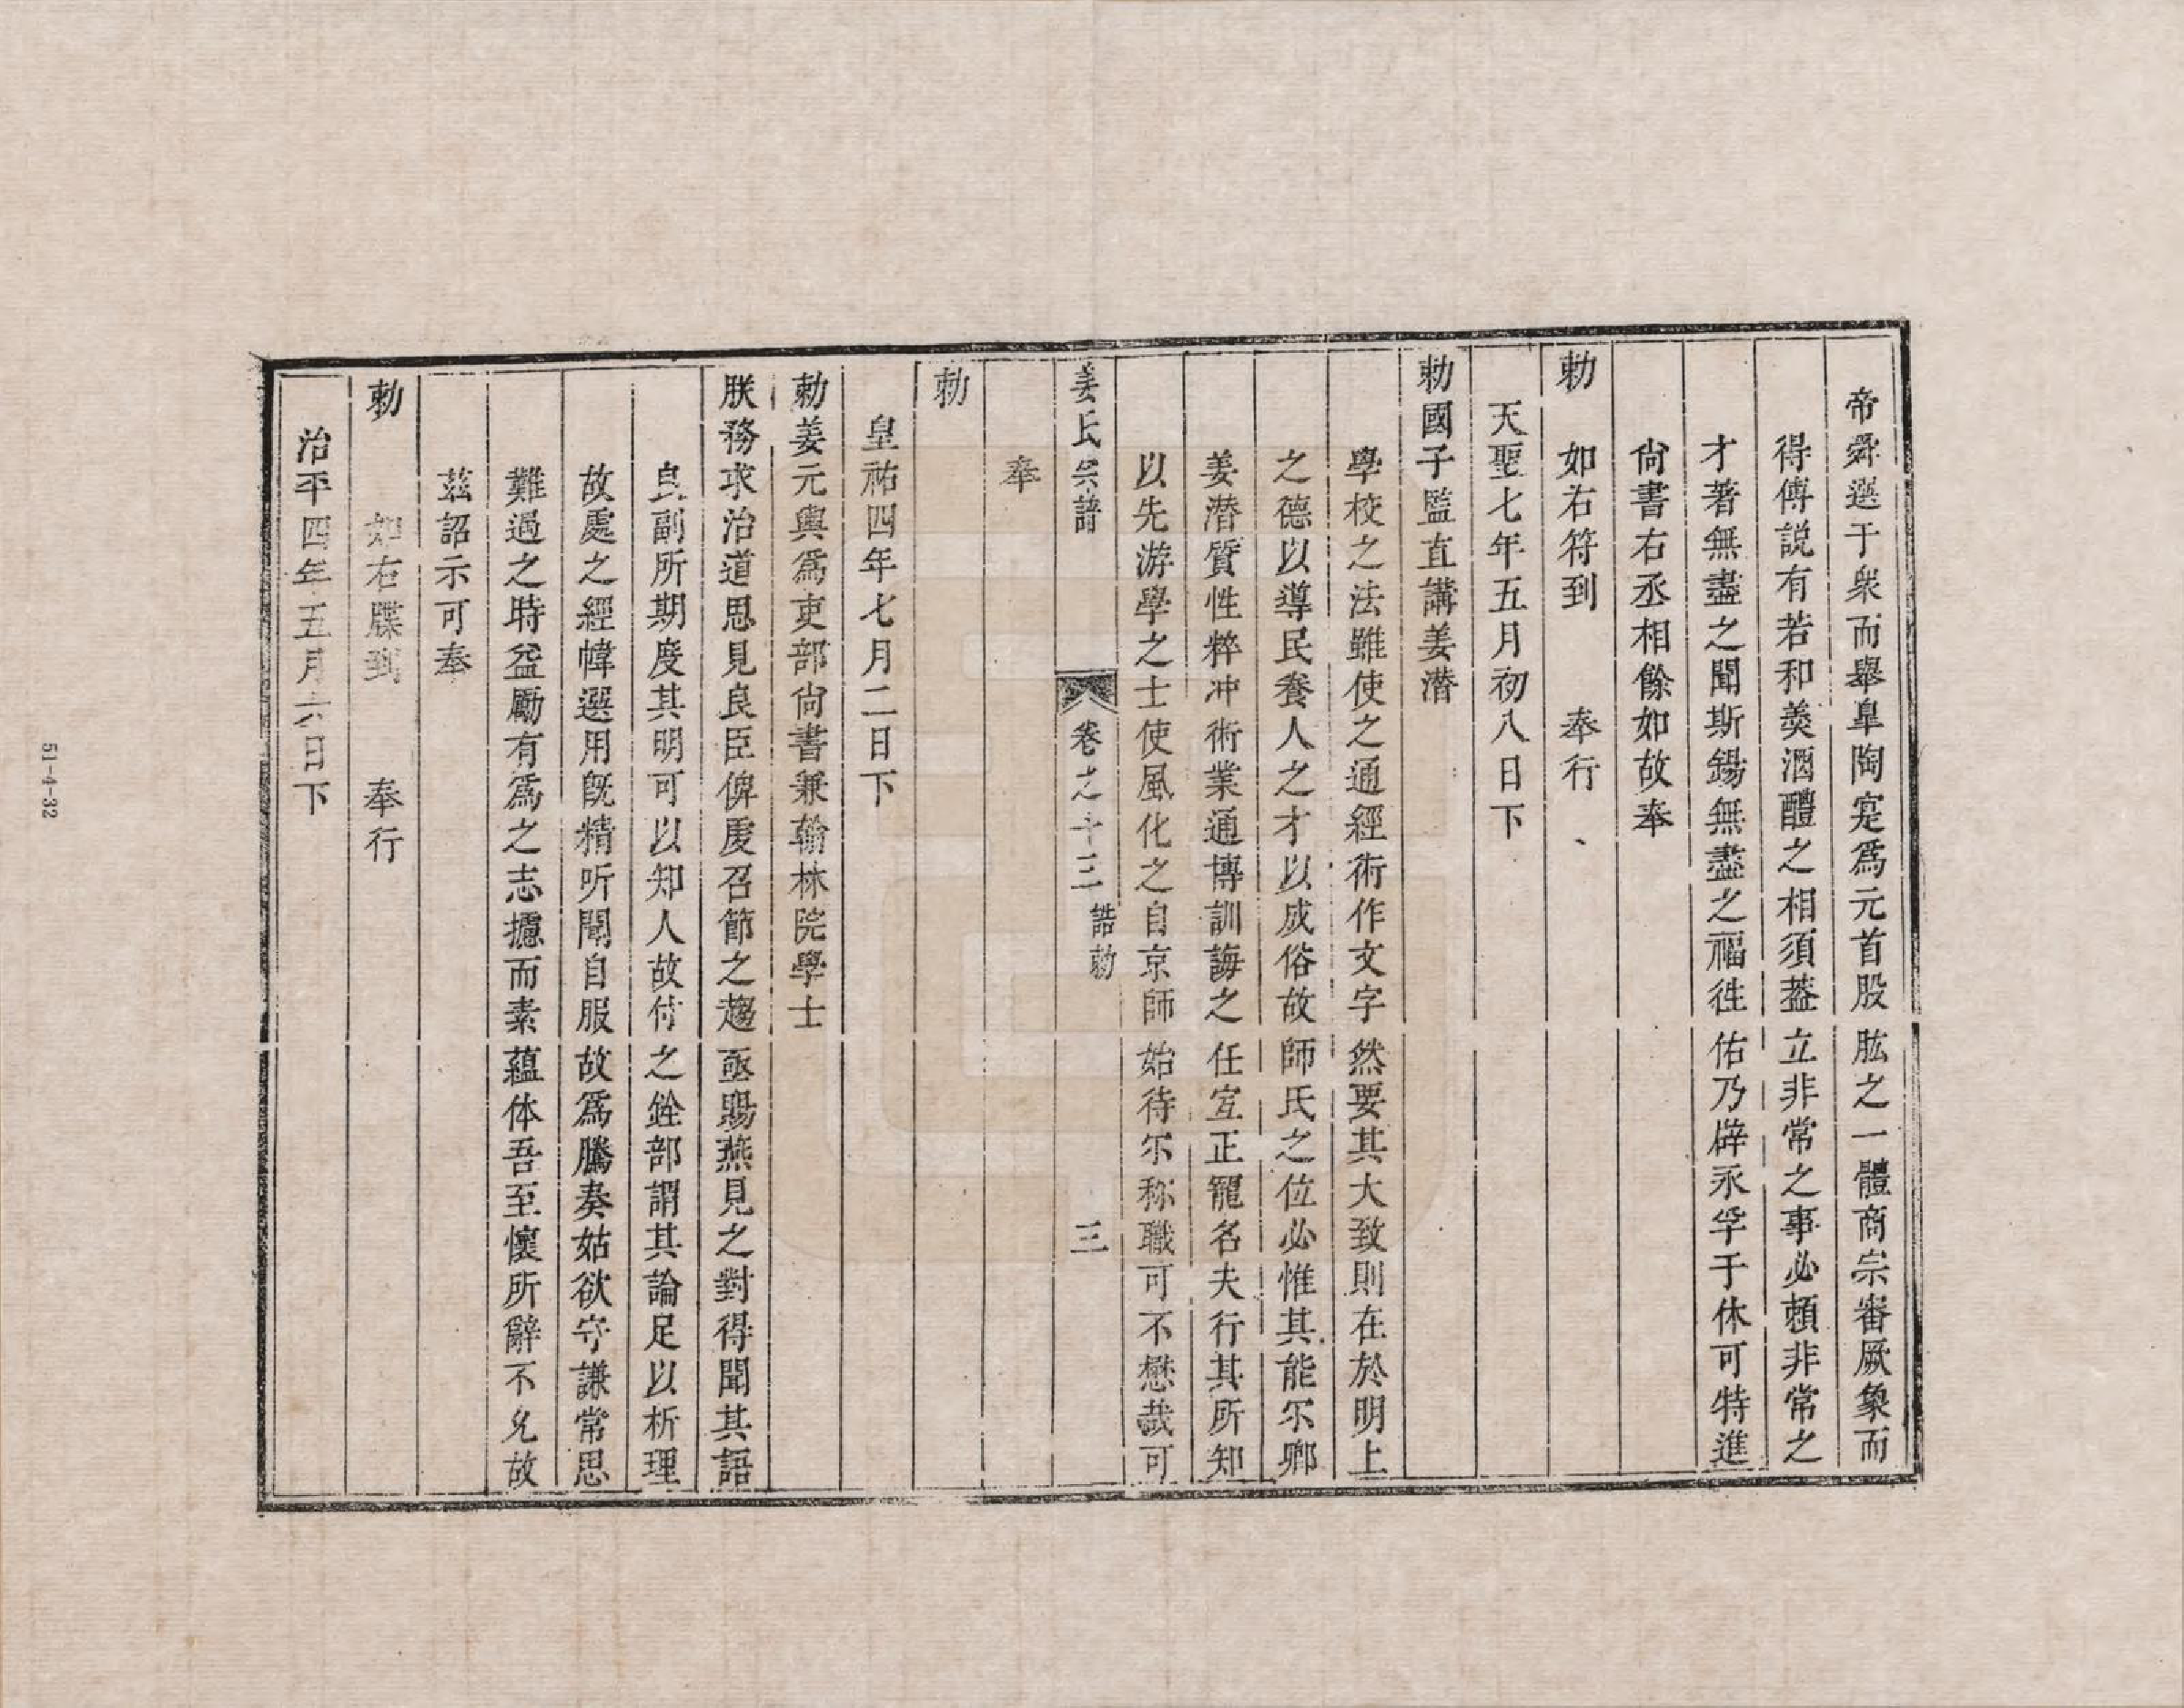 帝舜選于衆而舉臯陶寔爲元首股肱之一體商宗審厥象而
得傅説有若和羮酒醴之相須葢立非常之事必頼非常之
才著無盡之聞斯錫無盡之福徃佑乃辟永孚于休可特進
尙書右丞相餘如故奉
勅　如右符到　　奉行
天聖七年五月初八日下
勅國子監直講姜潜
學校之法雖使之通經術作文字然要其大致則在於明上
之德以導民養人之才以成俗故師氏之位必惟其能尔卿
姜潜質性粹冲術業通博訓誨之任宜正寵名夫行其所知
以先游學之士使風化之自京師始待尔称職可不懋哉可
姜氏宗譜　卷之十三　誥勅　三
奉
勅
皇祐四年七月二日下
勅姜元輿爲吏部尙書兼翰林院學士
朕務求治道思見良臣俾虔召節之趨亟賜燕見之對得聞其語
良副所期度其明可以知人故付之銓部謂其論足以析理
故處之經幃選用旣精听聞自服故爲騰奏姑欲守謙常思
難遇之時益勵有爲之志攄而素蘊体吾至懷所辭不允故
茲詔示可奉
勅　　如右牒到　　奉行
治平四年五月六日下
51-4-32